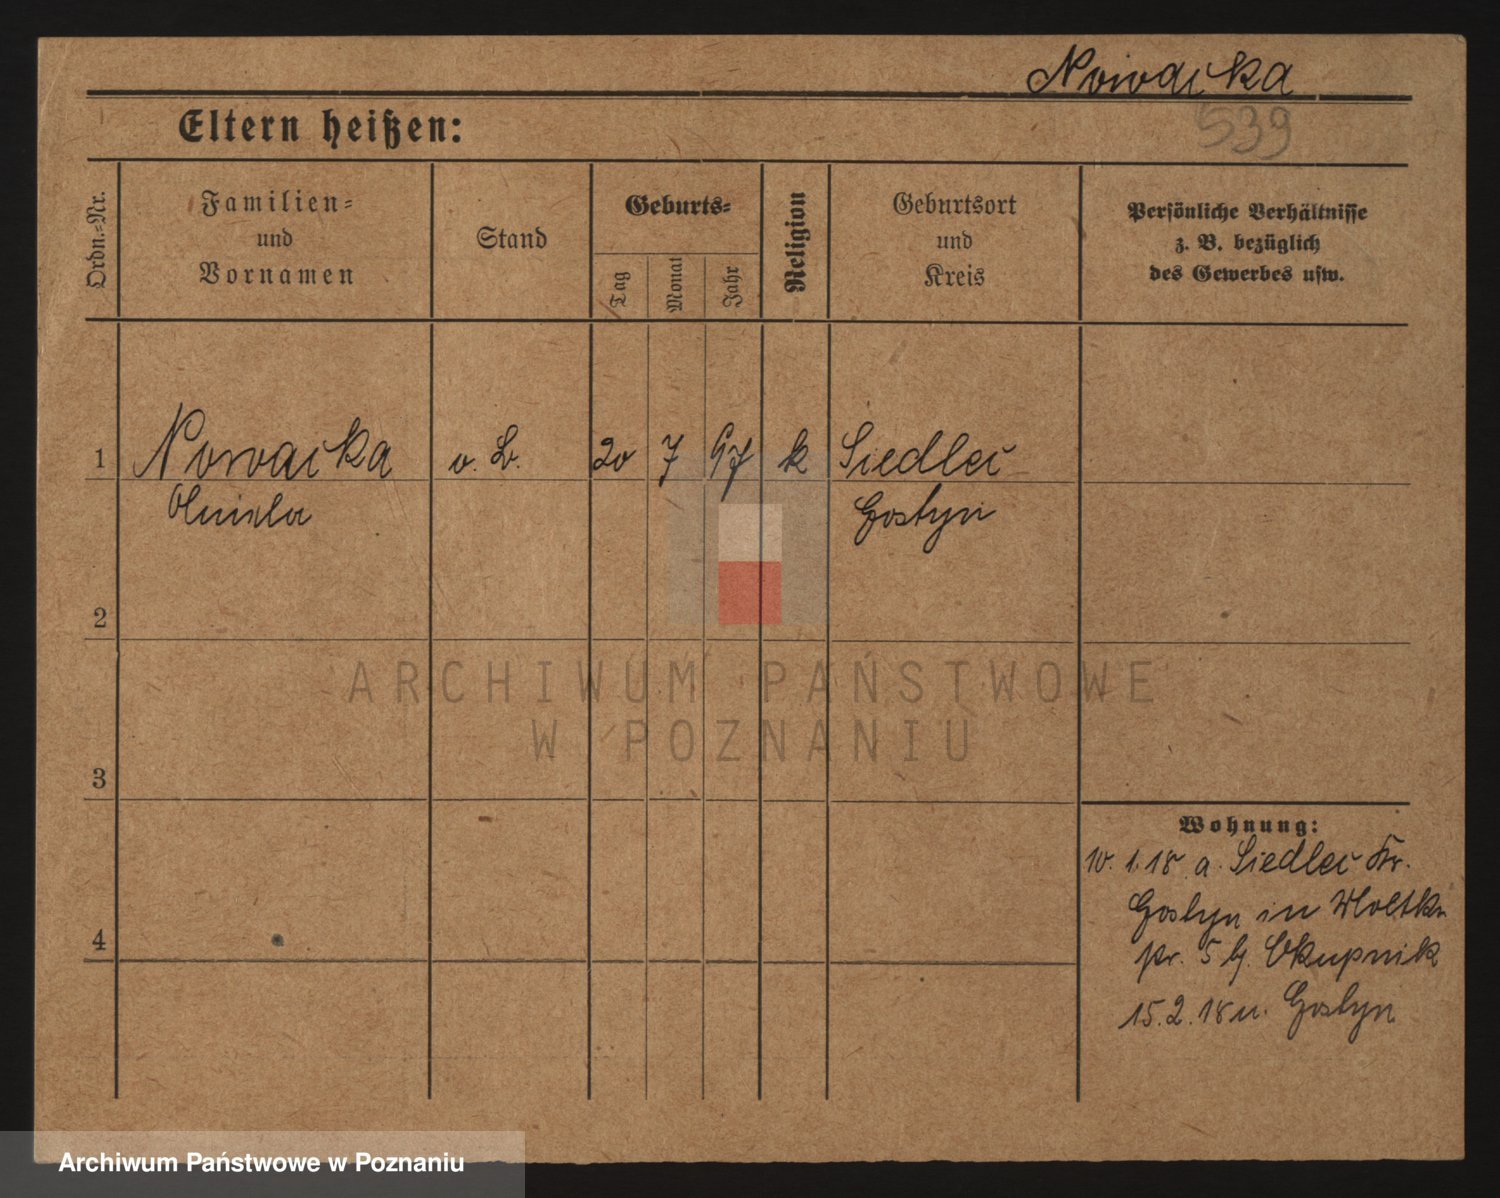 Nowacka
539
Eltern heißen:
Ordn.=Nr.
Familien=
und
Vornamen
Stand
Geburts=
Tag
Monat
Jahr
Religion
Geburtsort
und
Kreis
Persönliche Verhältnisse
z. B. bezüglich
des Gewerbes usw.
1 Nowacka o. B. 20 7 97 k Siedlec
Gostyn
2
3
4
Wohnung:
10. 1. 18 a. Siedlec Kr.
Gostyn in
pr. 5 b. Okupnik
15. 2. 18 n. Gostyn
ARCHIWUM PAŃSTWOWE
W POZNANIU
Archiwum Państwowe w Poznaniu